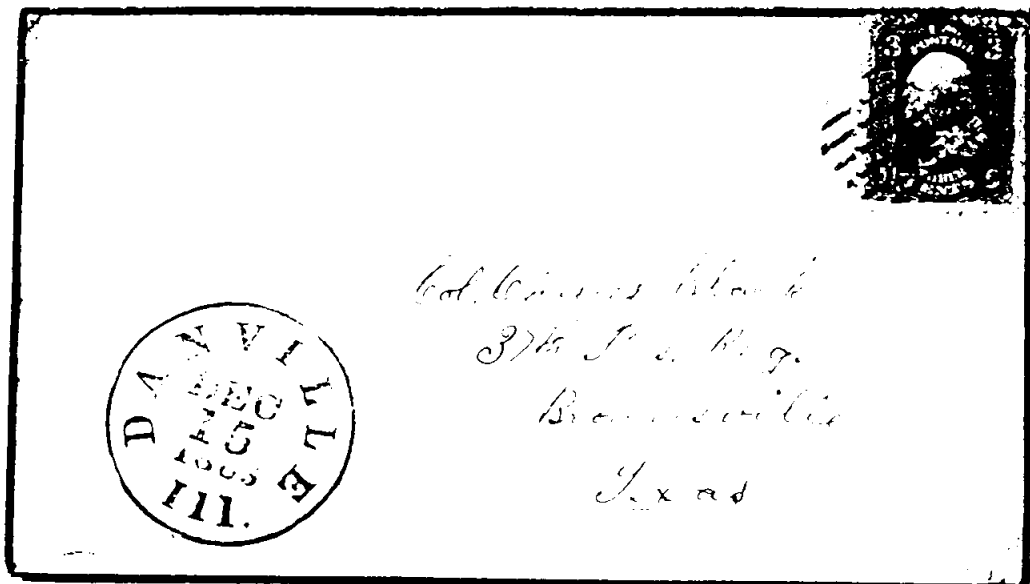 POSTAGE
DANVILLE
DEC
15
1863
Ill.
Col. Black
37th Ills. Reg.
Brownsville
Texas